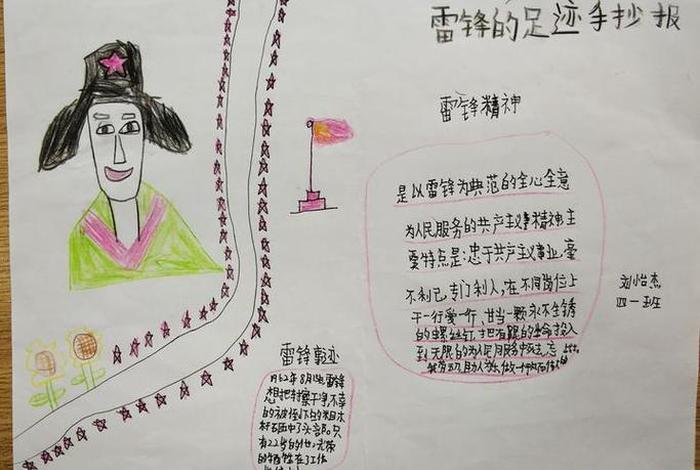 雷锋的足迹手抄报
雷锋精神
是以雷锋为典范的全心全意
为人民服务的共产主义精神主
要特点是:忠于共产主义事业,毫
不利己,专门利人,在不同岗位上
干一行爱一行、甘当一颗永不生锈
的螺丝钉,把有限的生命投入
到无限的为人民服务中去,
助人为乐,做一
刘怡杰
四一班
雷锋事迹
62年8月 雷锋
想把 擦干净,不幸
的被
了头部,只
有22岁的他,光荣
的牺牲在了工作